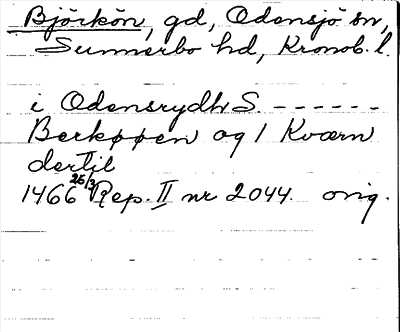 Björkön, gd, Odensjö sn,
Sunnerbo hd, Kronob. l.
i Odensrydh S. - - - - - -
Berkøøen og 1 Kværn
dertil
1466 25/3 Rep. II nr 2044. orig.